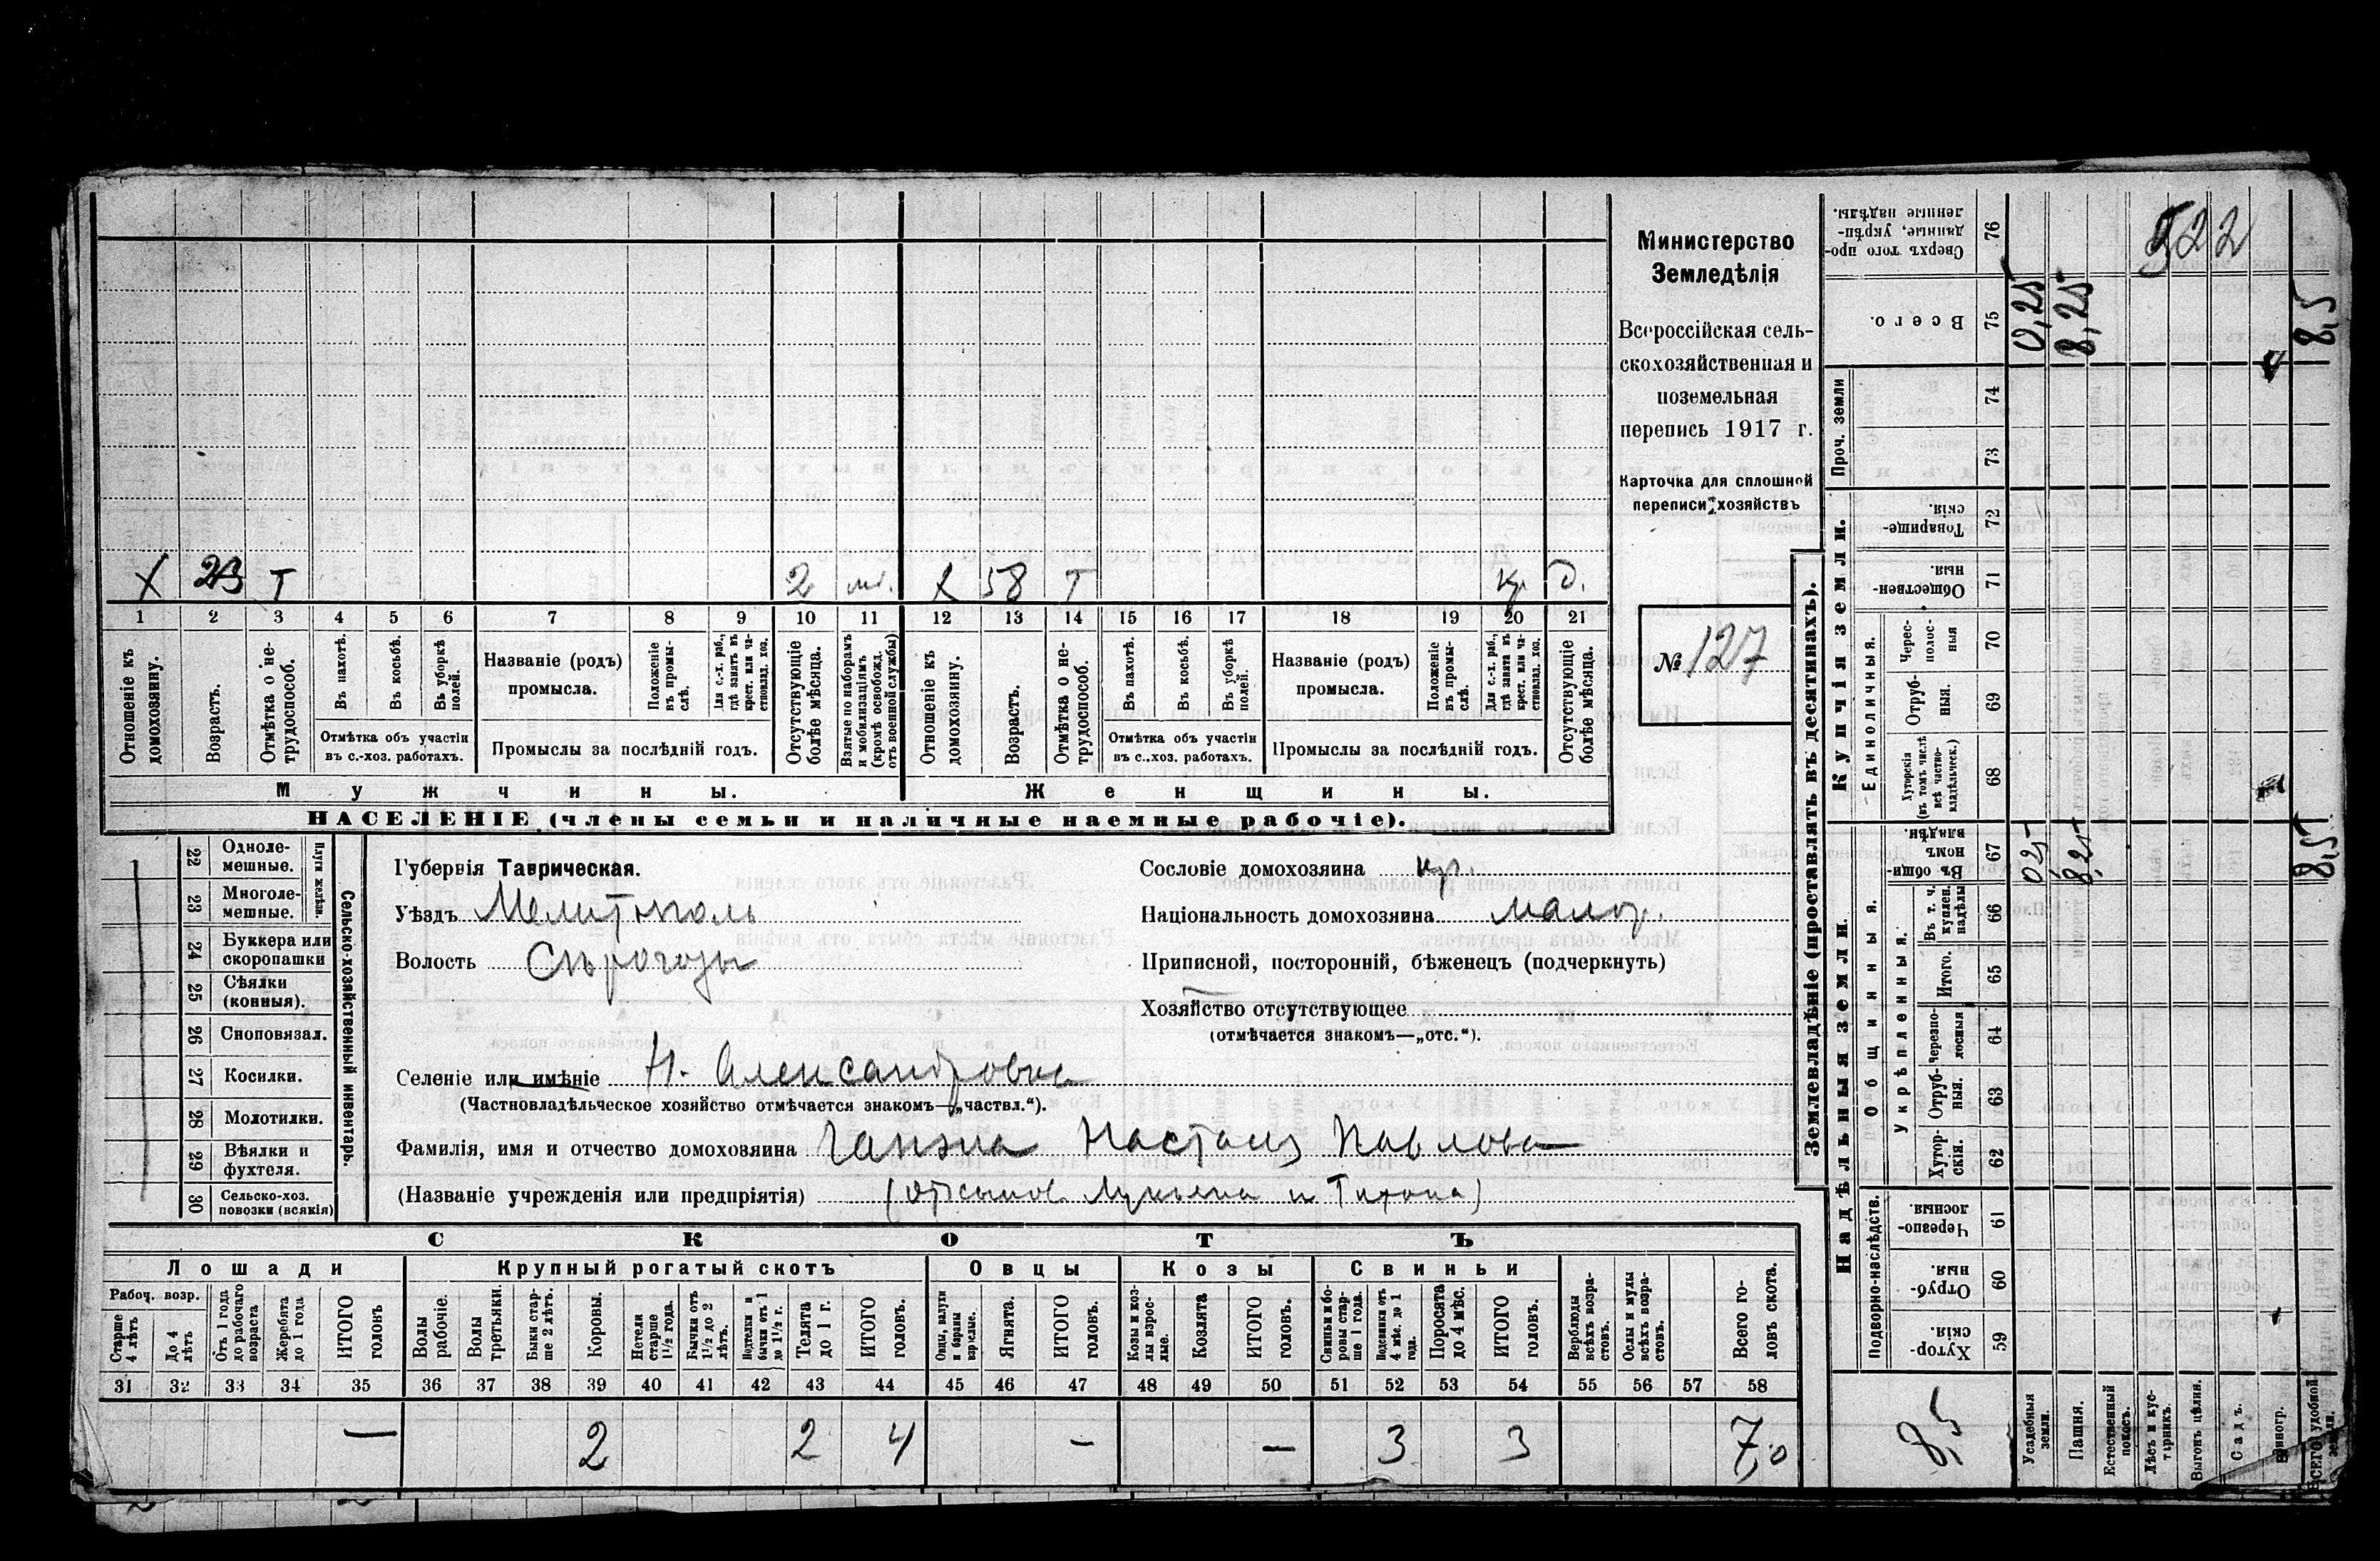 Х 23 Т 2 мѣ. Х 58 Т кр д.
1 2 3 4 5 6 7 8 9 10 11 12 13 14 15 16 17 18 19 20 21
Отношеніе къ домохозяину.
Возрастъ.
Отмѣтка о нетрудоспособ.
Въ пахотѣ.
Въ косьбѣ.
Въ уборкѣ полей.
Отмѣтка объ участіи
въ с.-хоз. работахъ.
Названіе (родъ)
промысла.
Положеніе въ промыслѣ.
Для с.-х. раб., гдѣ занятъ въ крест. или частновлад. хоз.
Промыслы за послѣдній годъ.
Отсутствующіе болѣе мѣсяца.
Взятые по наборамъ и мобилизаціямъ (кромѣ освобожд. отъ военной службы)
Отношеніе къ домохозяину.
Возрастъ.
Отмѣтка о нетрудоспособ.
Въ пахотѣ.
Въ косьбѣ.
Въ уборкѣ полей.
Отмѣтка объ участіи
въ с.-хоз. работахъ.
Названіе (родъ)
промысла.
Положеніе въ промыслѣ.
Для с.-х. раб., гдѣ занята въ крест. или частновлад. хоз.
Промыслы за послѣдній годъ.
Отсутствующіе болѣе мѣсяца.
Мужчины. Женщины.
НАСЕЛЕНІЕ (члены семьи и наличные наемные рабочіе).
Министерство
Земледѣлія
Всероссійская сель-
скохозяйственная и
поземельная
перепись 1917 г.
Карточка для сплошной
переписи хозяйствъ
№ 127
22 Одноле-
мешные.
23 Многоле-
мешные.
Плуги желѣзн.
24 Буккера или
скоропашки
25 Сѣялки
(конныя).
26 Сноповязал.
27 Косилки.
28 Молотилки.
29 Вѣялки и
фухтеля.
30 Сельско-хоз.
повозки (всякія)
Сельско-хозяйственный инвентарь.
Губернія Таврическая.
Уѣздъ Мелитополь
Волость Сѣрогозы
Селеніе или имѣніе Н. Александровка
(Частновладѣльческое хозяйство отмѣчается знакомъ—„частвл.“).
Фамилія, имя и отчество домохозяина Павлова
(Названіе учрежденія или предпріятія) Лукьяна и Тихона)
Сословіе домохозяина кр.
Національность домохозяина малор.
Приписной, посторонній, бѣженецъ (подчеркнуть)
Хозяйство отсутствующее
(отмѣчается знакомъ—„отс.“).
СКОТЪ
Лошади Крупный рогатый скотъ Овцы Козы Свиньи
Рабоч. возр.
Старше 4 лѣтъ
До 4 лѣтъ
Отъ 1 года до рабочаго возраста
Жеребята до 1 года
ИТОГО головъ
Волы рабочіе.
Волы третьяки.
Быки старше 2 лѣтъ.
Коровы.
Нетели старше 1½ года.
Бычки отъ 1½ до 2 лѣтъ.
Подтелки и бычки отъ 1 до 1½ г.
Телята до 1 г.
ИТОГО головъ.
Овцы, валухи и бараны взрослые.
Ягнята.
ИТОГО головъ.
Козы и козлы взрослые.
Козлята
ИТОГО головъ.
Свиньи и боровы старше 1 года.
Подсвинки отъ 4 мѣс. до 1 года.
Поросята до 4 мѣс.
ИТОГО головъ.
Верблюды всѣхъ возрастовъ.
Ослы и мулы всѣхъ возрастовъ.
Всего головъ скота.
31 32 33 34 35 36 37 38 39 40 41 42 43 44 45 46 47 48 49 50 51 52 53 54 55 56 57 58
— 2 2 4 — — 3 3 7,0
Землевладѣніе (проставлять въ десятинахъ).
Надѣльныя земли. Купчія земли. Проч. земли
Подворно-наслѣдств. Общинныя. Единоличныя.
Укрѣпленныя.
Хуторскія 59
Отрубныя. 60
Черезполосныя. 61
Хуторскія. 62
Отрубныя. 63
Черезполосныя 64
Итого. 65
Въ т. ч. куплен. надѣлы 66
Въ общинномъ владѣн. 67
Хуторскія (въ томъ числѣ всѣ частновладѣльческ.) 68
Отрубныя. 69
Чересполосныя 70
Общественныя 71
Товарищескія. 72
73
74
Всего. 75
Сверхъ того проданные, укрѣпленные надѣлы. 76
Усадебныя земли.
Пашня.
Естественный покосъ.
Лѣсъ и кустарникъ.
Выгонъ цѣлин.
Садъ.
Виногр.
ВСЕГО удобной земли.
0,25 8,25 8,5
025 8,25 8,5
8,5
522